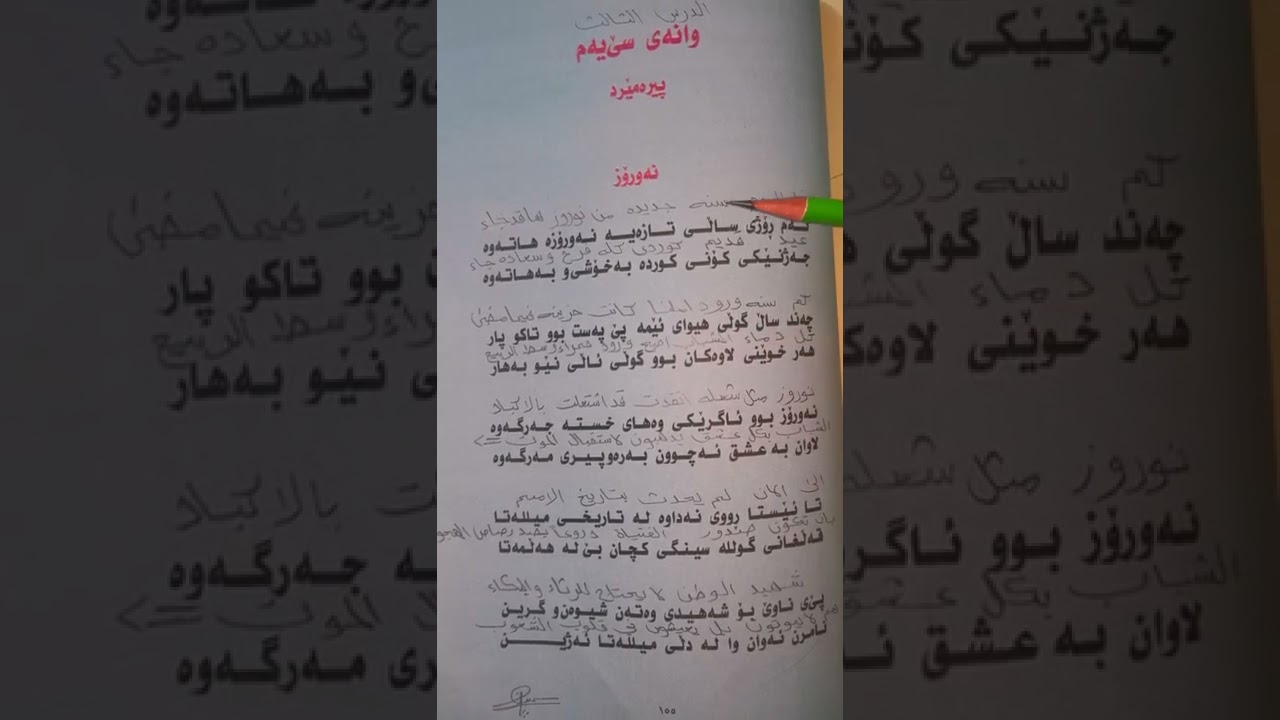 الدرس الثالث
وانەی سێیەم
پیرەمێرد
نەورۆز
سنە جدیدە من نوروز جاء
ئەم رۆژی ساڵی تازەیە نەورۆزە هاتەوە
عید قدیم كوردی كلە فرح و سعادە جاء
جەژنێکی کۆنی کوردە بەخۆشی و بەهاتەوە
كم سنە ورود كانت حزینە فیما مضی
چەند ساڵ گوڵی هیوای ئێمە پێ پەست بوو تاکو پار
كل دماء الشباب ورود حمراء وسط الربیع
هەر خوێنی لاوەکان بوو گوڵی ئاڵی نێو بەهار
نوروز مثل شعلە قد اشتعلت بالاكباد
نەورۆز بوو ئاگرێکی وەهای خستە جەرگەوە
الشباب بكل عشق لاستقبال الموت <=
لاوان بە عشق ئەچوون بەرەوپیری مەرگەوە
الی الان لم یحدث بتاریخ الامم
تا ئێستا رووی نەداوە لە تاریخی میللەتا
بان تكون صدور الفتیاة دروعا بضد رصاص الهجوم
قەڵغانی گوللە سینگی کچان بێ لە هەڵمەتا
شهید الوطن لا یحتاج للرثاء والبكاء
پێی ناوێ بۆ شەهیدی وەتەن شیوەن و گرین
هم لا یموتون بل یعیشون فی قلوب الشعوب
نامرن ئەوان وا لە دڵی میللەتا ئەژین
١٥٥